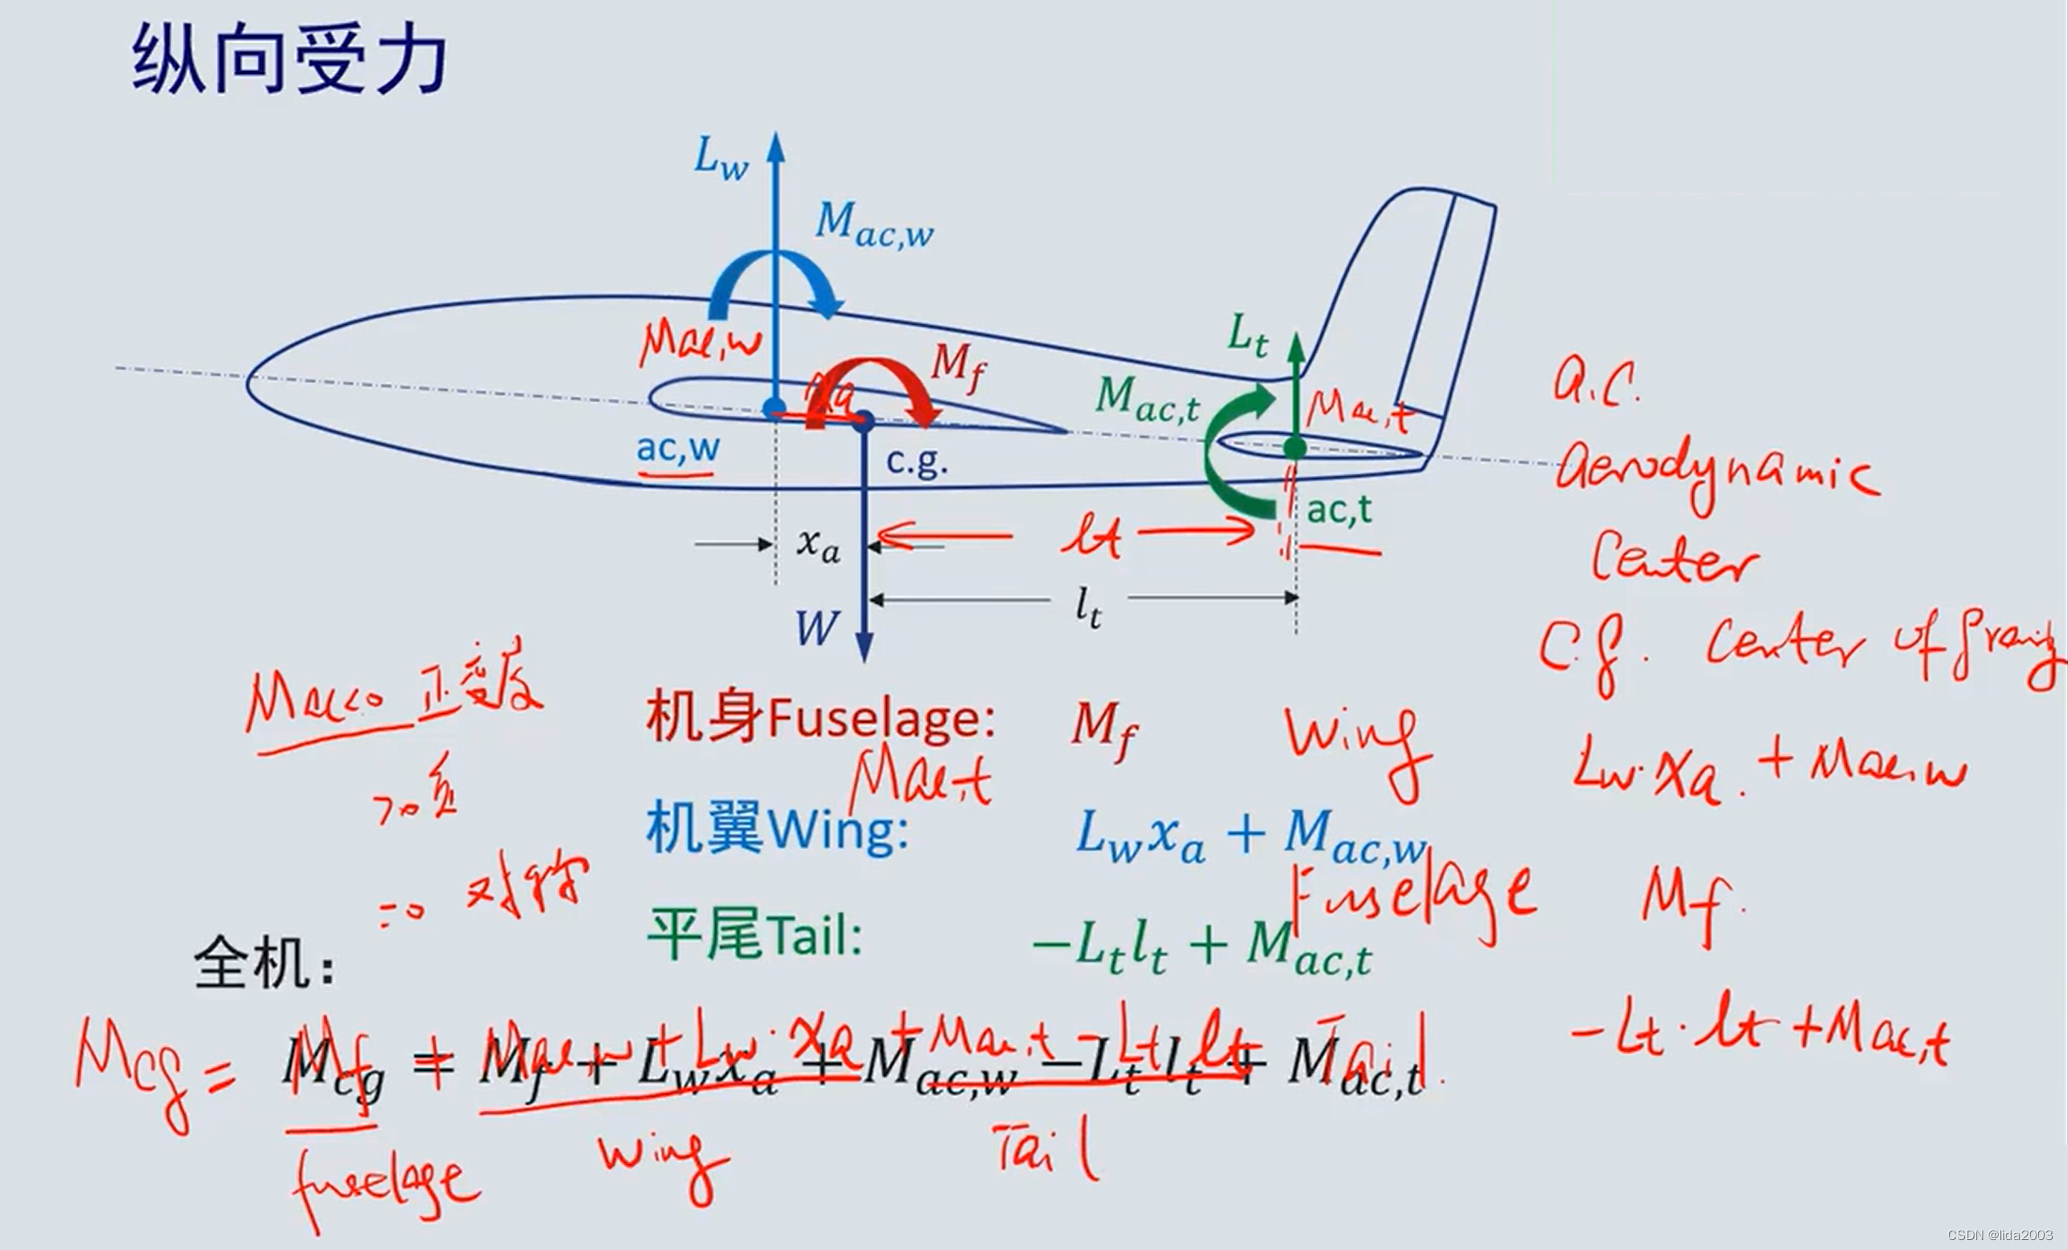 纵向受力
L_w
M_{ac,w}
Mac,w
M_f
xa
L_t
M_{ac,t}
Mac,t
a.c.
ac,w
c.g.
Aerodynamic
ac,t
x_a
lt
Center
l_t
W
C.g. Center of
Mac<0 正弯度
>0 负
=0 对称
机身Fuselage: M_f
Wing
Lw·Xa + Mac,w
Mac,t
机翼Wing: L_w x_a + M_{ac,w}
Fuselage Mf
平尾Tail: −L_t l_t + M_{ac,t}
全机：
-Lt·lt + Mac,t
Mcg = Mf + Mac,w + Lw·Xa + Mac,t - Lt lt
Tail
M_{cg} = M_f + L_w x_a + M_{ac,w} − L_t l_t + M_{ac,t}
fuselage
Wing
Tail
CSDN @lida2003